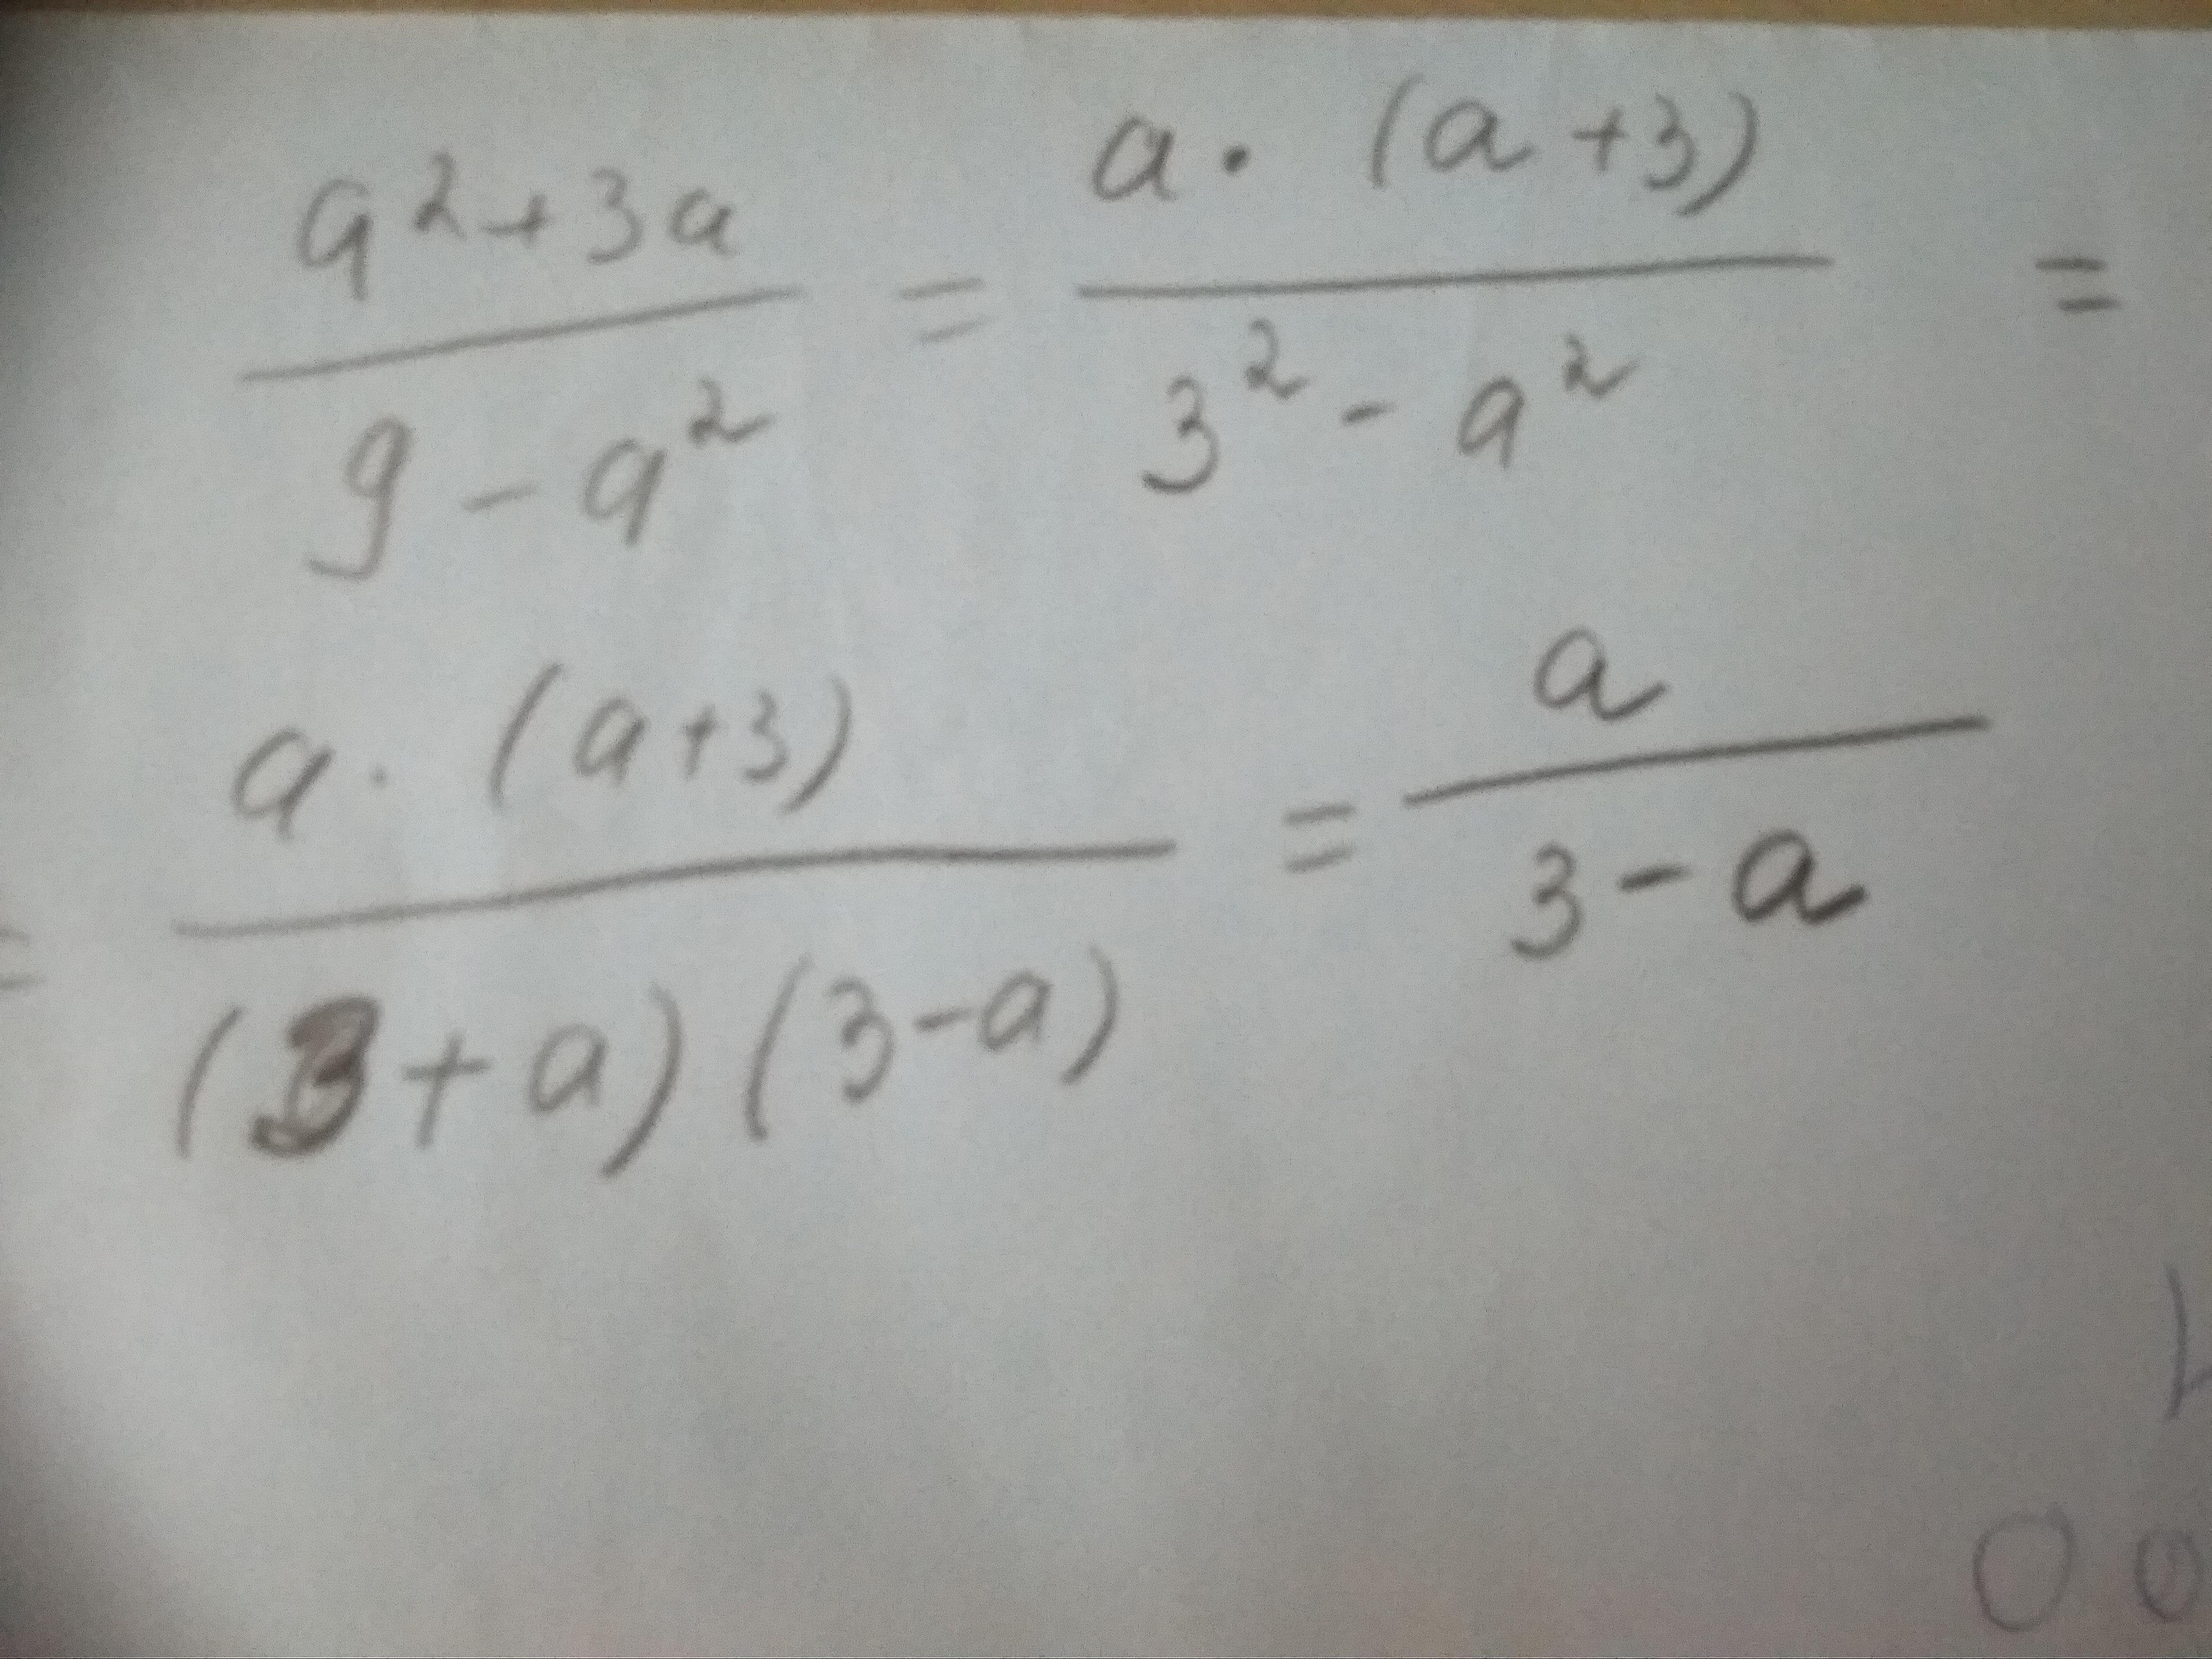 a²+3a / 9-a² = a·(a+3) / 3²-a² =
= a·(a+3) / (3+a)(3-a) = a / 3-a